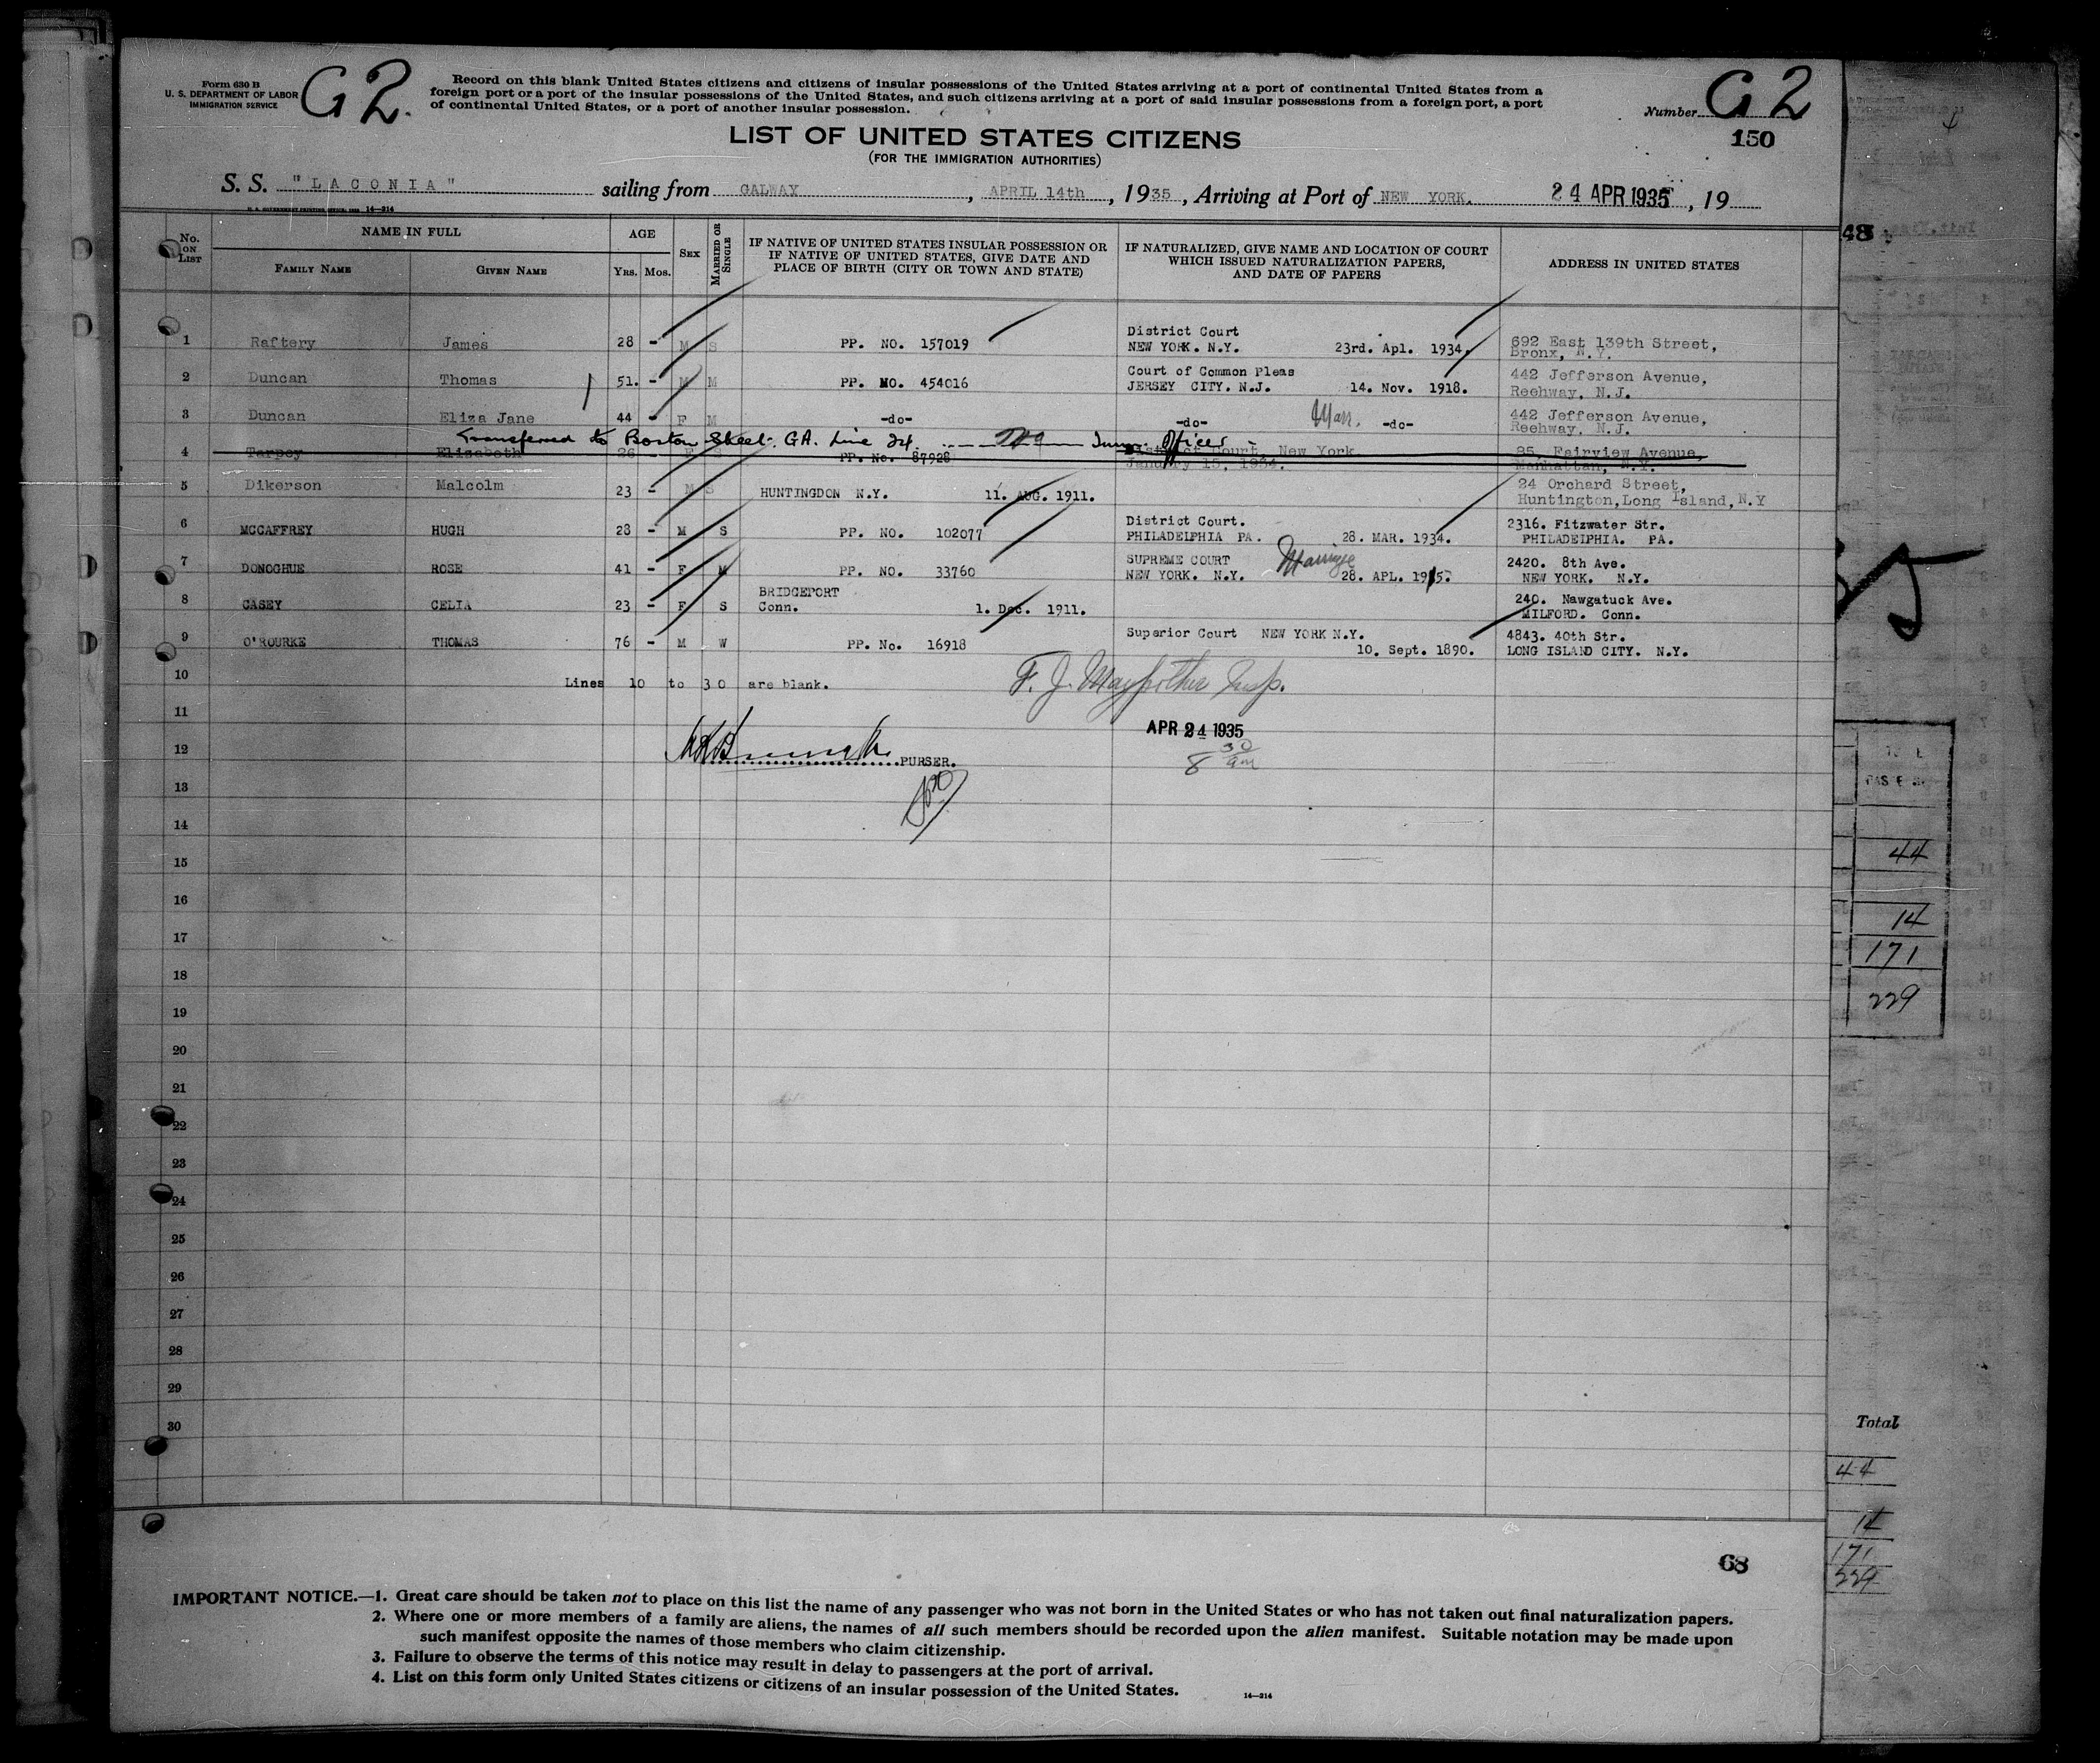 Form 630 B
U. S. DEPARTMENT OF LABOR
IMMIGRATION SERVICE
G2.
Record on this blank United States citizens and citizens of insular possessions of the United States arriving at a port of continental United States from a
foreign port or a port of the insular possessions of the United States, and such citizens arriving at a port of said insular possessions from a foreign port, a port
of continental United States, or a port of another insular possession.
Number G2
150
LIST OF UNITED STATES CITIZENS
(FOR THE IMMIGRATION AUTHORITIES)
S. S. "LACONIA" sailing from GALWAY, APRIL 14th, 1935, Arriving at Port of NEW YORK. 24 APR 1935, 19
14-214
No. on List
NAME IN FULL
FAMILY NAME
GIVEN NAME
AGE
YRS. MOS.
SEX
MARRIED OR SINGLE
IF NATIVE OF UNITED STATES INSULAR POSSESSION OR
IF NATIVE OF UNITED STATES, GIVE DATE AND
PLACE OF BIRTH (CITY OR TOWN AND STATE)
IF NATURALIZED, GIVE NAME AND LOCATION OF COURT
WHICH ISSUED NATURALIZATION PAPERS,
AND DATE OF PAPERS
ADDRESS IN UNITED STATES
48
1 Raftery James 28 - M S PP. NO. 157019 District Court
NEW YORK. N.Y. 23rd. Apl. 1934. 692 East 139th Street,
Bronx, N.Y.
2 Duncan Thomas 51. - M M PP. NO. 454016 Court of Common Pleas
JERSEY CITY. N.J. 14. Nov. 1918. 442 Jefferson Avenue,
Reehway, N.J.
3 Duncan Eliza Jane 44 - F M -do- -do- Marr. -do- 442 Jefferson Avenue,
Reehway, N.J.
Transferred to Boston Sheet. GA. Line 24. Officer
4 Tarpey Elizabeth 26 - F S PP. No. 87928 District Court, New York
January 15, 1934. 85, Fairview Avenue,
Manhattan, N.Y.
5 Dikerson Malcolm 23 - M S HUNTINGDON N.Y. 11. AUG. 1911. 24 Orchard Street,
Huntington, Long Island, N.Y
6 MCCAFFREY HUGH 28 - M S PP. NO. 102077 District Court.
PHILADELPHIA PA. 28. MAR. 1934. 2316. Fitzwater Str.
PHILADELPHIA. PA.
7 DONOGHUE ROSE 41 - F M PP. NO. 33760 SUPREME COURT Marriage
NEW YORK. N.Y. 28. APL. 1915. 2420. 8th Ave.
NEW YORK. N.Y.
8 CASEY CELIA 23 - F S BRIDGEPORT
Conn. 1. Dec. 1911. 240. Nawgatuck Ave.
MILFORD. Conn.
9 O'ROURKE THOMAS 76 - M W PP. No. 16918 Superior Court NEW YORK N.Y.
10. Sept. 1890. 4843. 40th Str.
LONG ISLAND CITY. N.Y.
10 Lines 10 to 30 are blank.
F. J. Insp.
11
APR 24 1935
12
PURSER.
8 30 am
13
14
15
16
17
18
19
20
21
22
23
24
25
26
27
28
29
30
44
14
171
229
Total
44
14
171
229
68
IMPORTANT NOTICE.—1. Great care should be taken not to place on this list the name of any passenger who was not born in the United States or who has not taken out final naturalization papers.
2. Where one or more members of a family are aliens, the names of all such members should be recorded upon the alien manifest. Suitable notation may be made upon
such manifest opposite the names of those members who claim citizenship.
3. Failure to observe the terms of this notice may result in delay to passengers at the port of arrival.
4. List on this form only United States citizens or citizens of an insular possession of the United States.
14-214